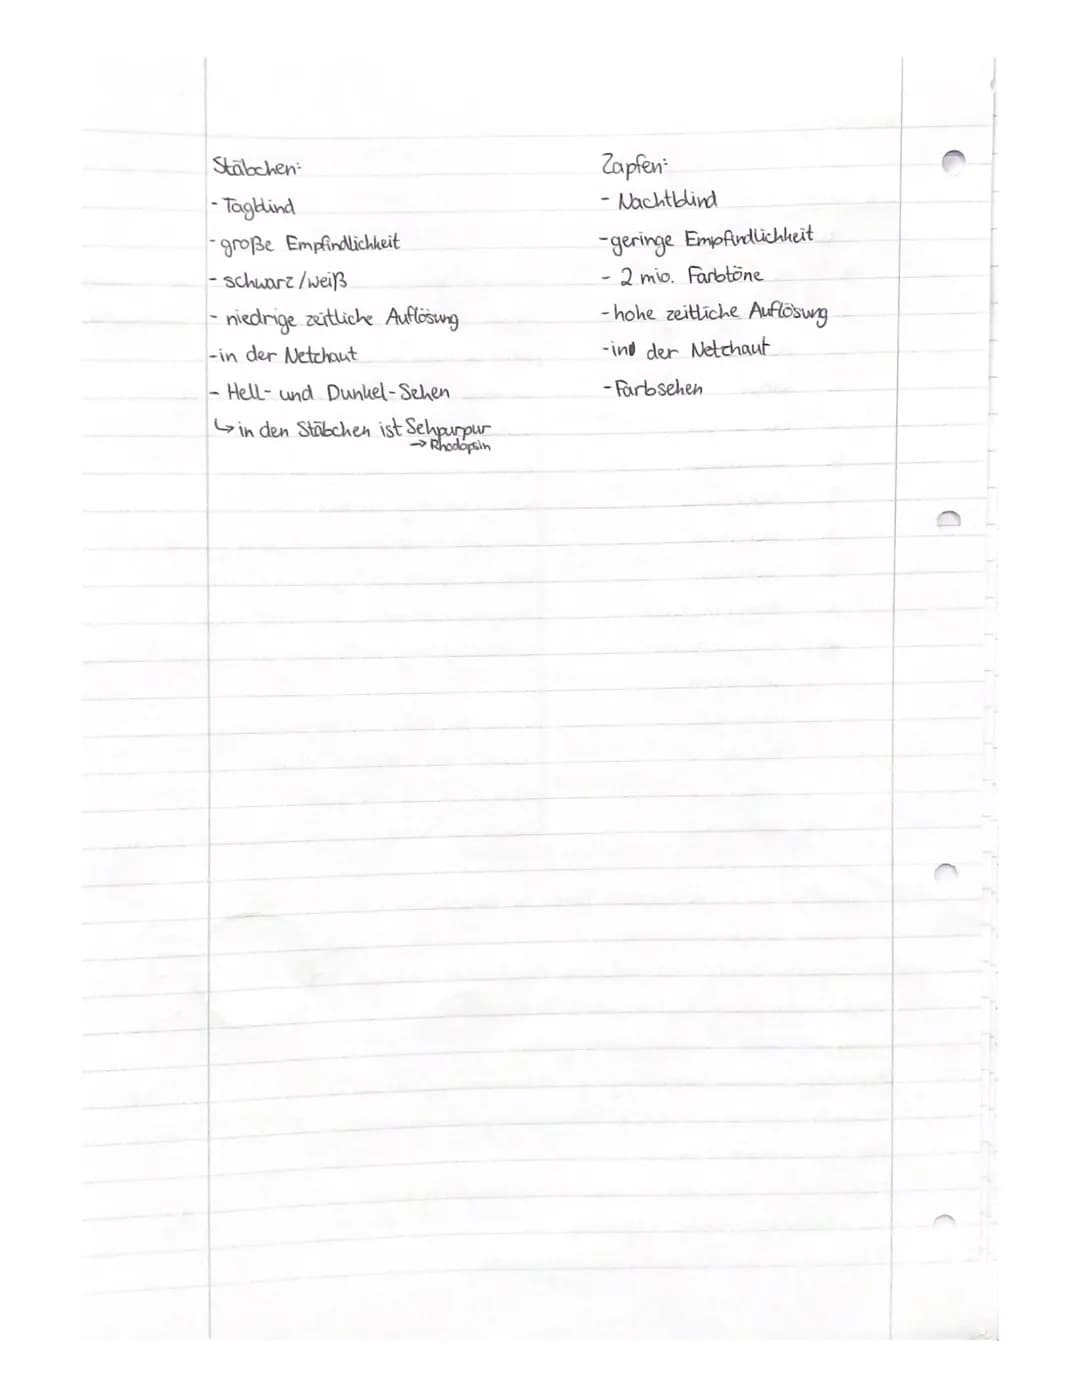 Stäbchen:
- Tagblind
- große Empfindlichkeit
- schwarz/weiß
- niedrige zeitliche Auflösung
- in der Netzhaut
- Hell- und Dunkel-Sehen
↳ in den Stäbchen ist Sehpurpur
→ Rhodopsin
Zapfen:
- Nachtblind
- geringe Empfindlichkeit
- 2 mio. Farbtöne
- hohe zeitliche Auflösung
- in der Netzhaut
- Farbsehen